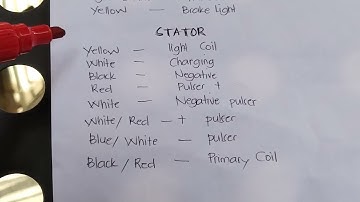 Yellow — Brake light
STATOR
Yellow — light Coil
White — Charging
Black — Negative
Red — Pulser +
White — Negative pulser
White/Red — + pulser
Blue/White — pulser
Black/Red — Primary Coil